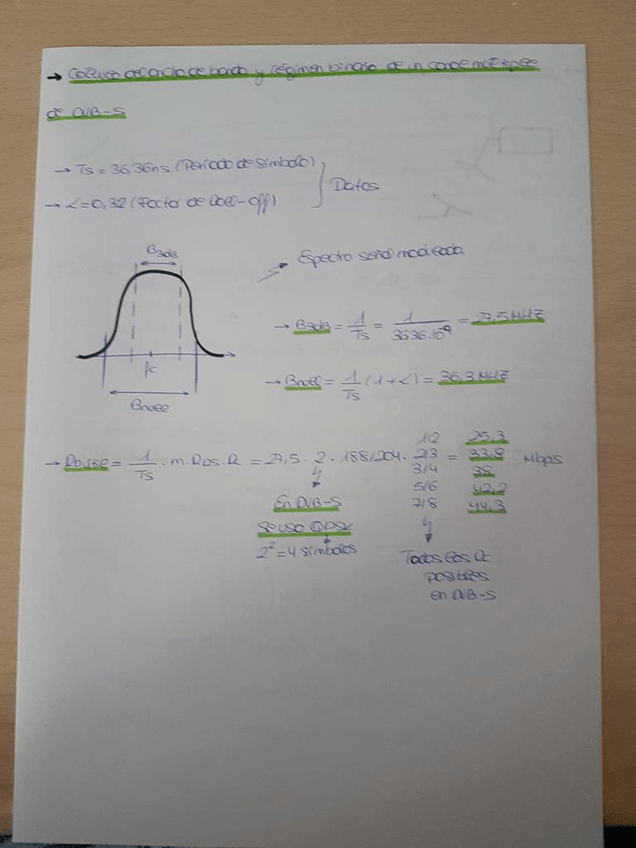 → Cálculo del ancho de banda y régimen binario de un canal múltiplex
de DVB-S
→ Ts = 36,36ns (Período de símbolo)
→ α=0,32 (Factor de Roll-off)
} Datos
B3dB
Espectro señal modulada
→ B3dB = 1/Ts = 1/36'36·10⁻⁹ = 27,5 MHZ
fc
Bnull
→ Bnull = 1/Ts (1+α) = 36,3 MHZ
→ Rb,TSE = 1/Ts · m·Rrs·Rc = 27,5 · 2 · 188/204 ·
1/2
2/3
3/4
5/6
7/8
=
25,3
33,8
38
42,2
44,3
Mbps
En DVB-S
se usa QPSK
2² = 4 símbolos
Todos los Rc
posibles
en DVB-S